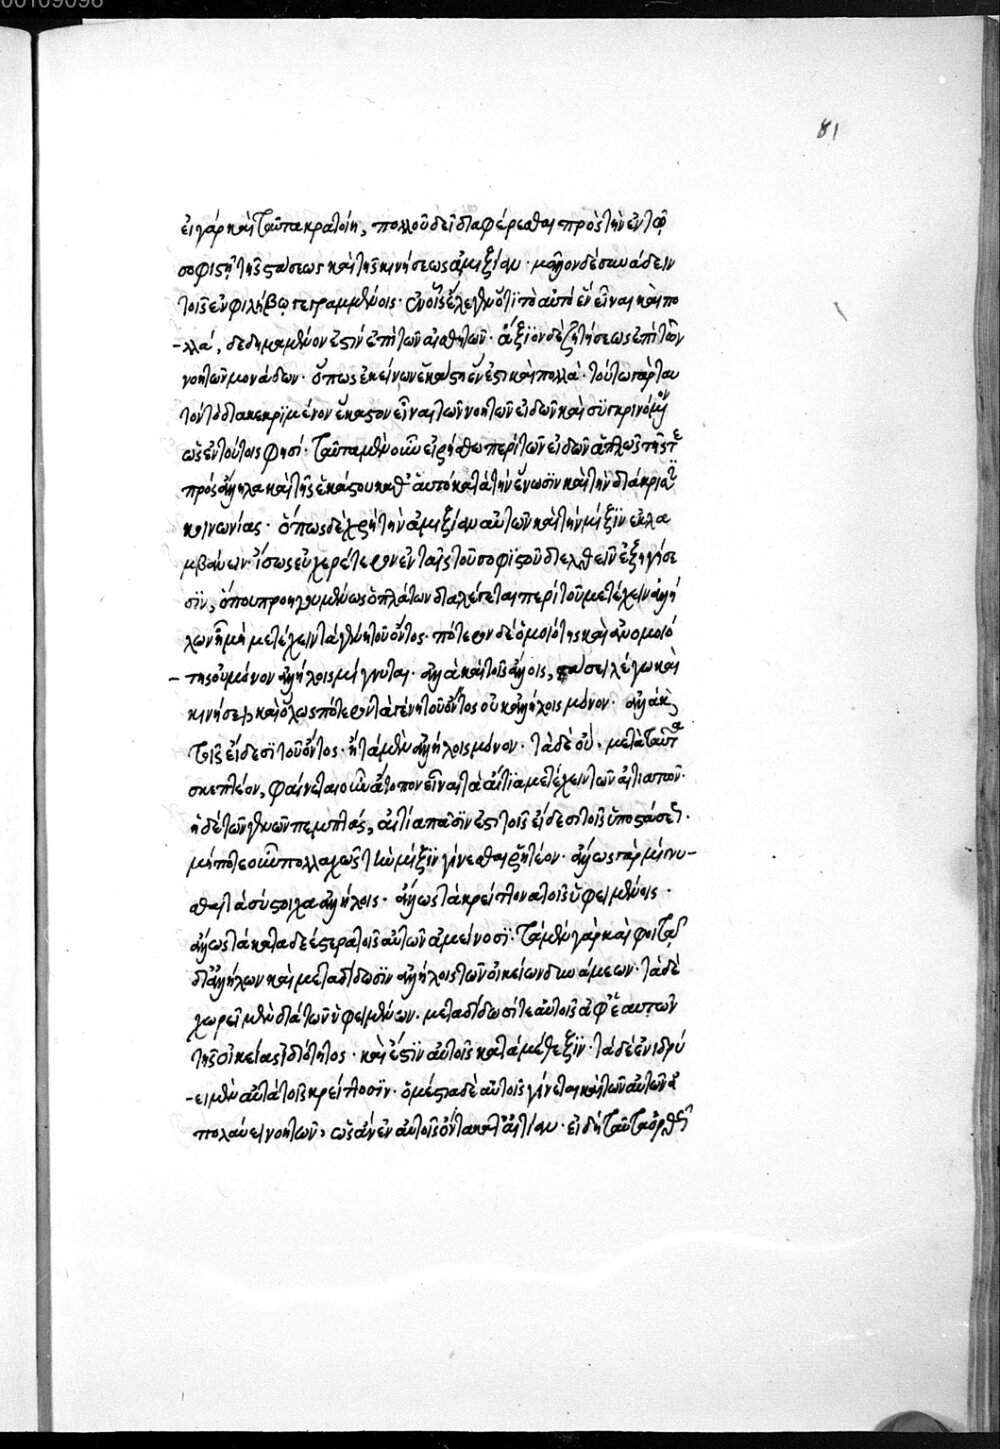 81
εἰ γάρ καὶ ταῦτα κρατοίη, πολλοῦ δεῖ διαφέρεσθαι πρὸς τὴν ἐν τῷ
σοφιστῇ τῆς στάσεως καὶ τῆς κινήσεως ἀμιξίαν· μᾶλλον δὲ συνάδειν
τοῖς ἐν φιλήβῳ γεγραμμένοις· ἐν οἷς ἔλεγεν ὅτι τὸ αὐτό ἓν εἶναι καὶ πο
-λλά, δεδημαμένον ἐστίν ἐπὶ τῶν αἰσθητῶν· ἄξιον δὲ ζητήσεως ἐπὶ τῶν
νοητῶν μονάδων· ὅπως ἐκείνων ἑκάστη ἕν ἐστι καὶ πολλὰ· τούτω γάρ ταυ
τὸν τὸ διακεκριμένον ἕκαστον εἶναι τῶν νοητῶν εἰδῶν καὶ συγκρινόμενον
ὡς ἐν τούτοις φησί· ταῦτα μὲν οὖν εἰρήσθω περὶ τῶν εἰδῶν ἁπλῶς τῆς τε
πρός ἄλληλα καὶ τῆς ἑκάστου καθ' ἑαυτό κατὰ τὴν ἕνωσιν καὶ τὴν διάκρισιν
κοινωνίας· ὅπως δὲ χρή τὴν ἀμιξίαν αὐτῶν καὶ τὴν μίξιν ἐκλα
μβάνειν· ἴσως εὐχερέστερον ἐν ταῖς τοῦ σοφιστοῦ διελθεῖν ἐξηγήσε
σιν, ὅπου προηγουμένως ὁ πλάτων διαλέγεται περὶ τοῦ μετέχειν ἀλλή
λων ἢ μὴ μετέχειν τὰ γένη τοῦ ὄντος· πότερον δὲ ὁμοιότης καὶ ἀνομοιό
-της οὐ μόνον ἀλλήλοις μίγνυται· ἀλλὰ καὶ τοῖς ἄλλοις, στάσει λέγω καὶ
κινήσει, καὶ ὅλως πότερον τὰ γένη τοῦ ὄντος οὐκ ἀλλήλοις μόνον· ἀλλὰ καὶ
τοῖς εἴδεσι τοῦ ὄντος· ἢ τὰ μὲν ἀλλήλοις μόνον· τὰ δὲ οὐ· μετὰ ταῦτα
σκεπτέον, φαίνεται οὖν ἄτοπον εἶναι τὰ αἴτια μετέχειν τῶν αἰτιατῶν·
ἡ δὲ τῶν γενῶν πεμπτάς, αἰτία πᾶσιν ἐστι τοῖς εἴδεσι τοῖς ὑποστάσεως·
μήποτε οὖν πολλαχῶς τὴν μίξιν γίνεσθαι ῥητέον· ἄλλως γάρ μίγνυ-
σθαι τὰ σύστοιχα ἀλλήλοις· ἄλλως τὰ κρείττονα τοῖς ὑφειμένοις·
ἄλλως τὰ καταδεέστερα τοῖς αὐτῶν ἀμείνοσι· τὰ μὲν γὰρ καὶ φοιτᾶν
δι' ἀλλήλων καὶ μεταδίδωσιν ἀλλήλοις τῶν οἰκείων δυνάμεων· τὰ δὲ
χωρεῖ μὲν διὰ τῶν ὑφειμένων· μεταδίδωσί τε αὐτοῖς ἀφ' ἑαυτῶν
τῆς οἰκείας ἰδιότητος· καὶ ἔστιν αὐτοῖς κατὰ μέθεξιν· τὰ δὲ ἐνιδρύ
-ει μὲν αὐτὰ τοῖς κρείττοσιν· ὁμέστια δὲ αὐτοῖς γίνεται καὶ τῶν αὐτῶν ἀ
πολαύει νοητῶν, ὡς ἀν ἐν αὐτοῖς ὄντα κατ' αἰτίαν· εἰ δὴ ταῦτα ὀρθῶς